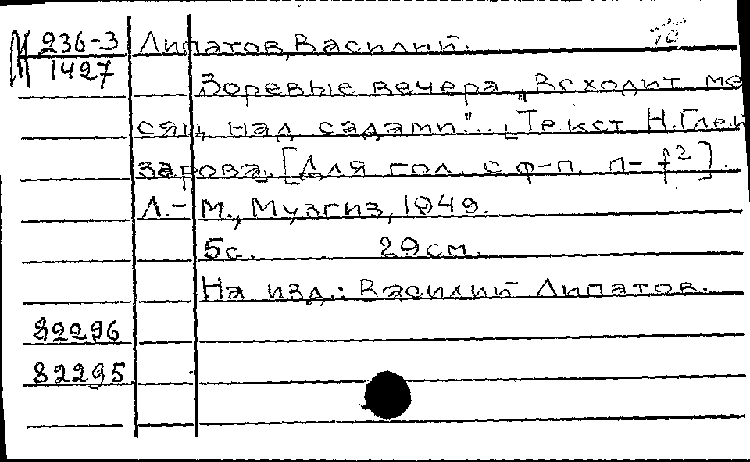 М 236-3 Липатов, Василий.
1427
Зоревые вечера „Всходит ме
сяц над садами"... [Текст Н. Глей
зарова. [Для гол. с ф-п. д-f²].
Л.-М., Музгиз, 1949.
5с. 29см.
На изд.: Василий Липатов.
82296
82295